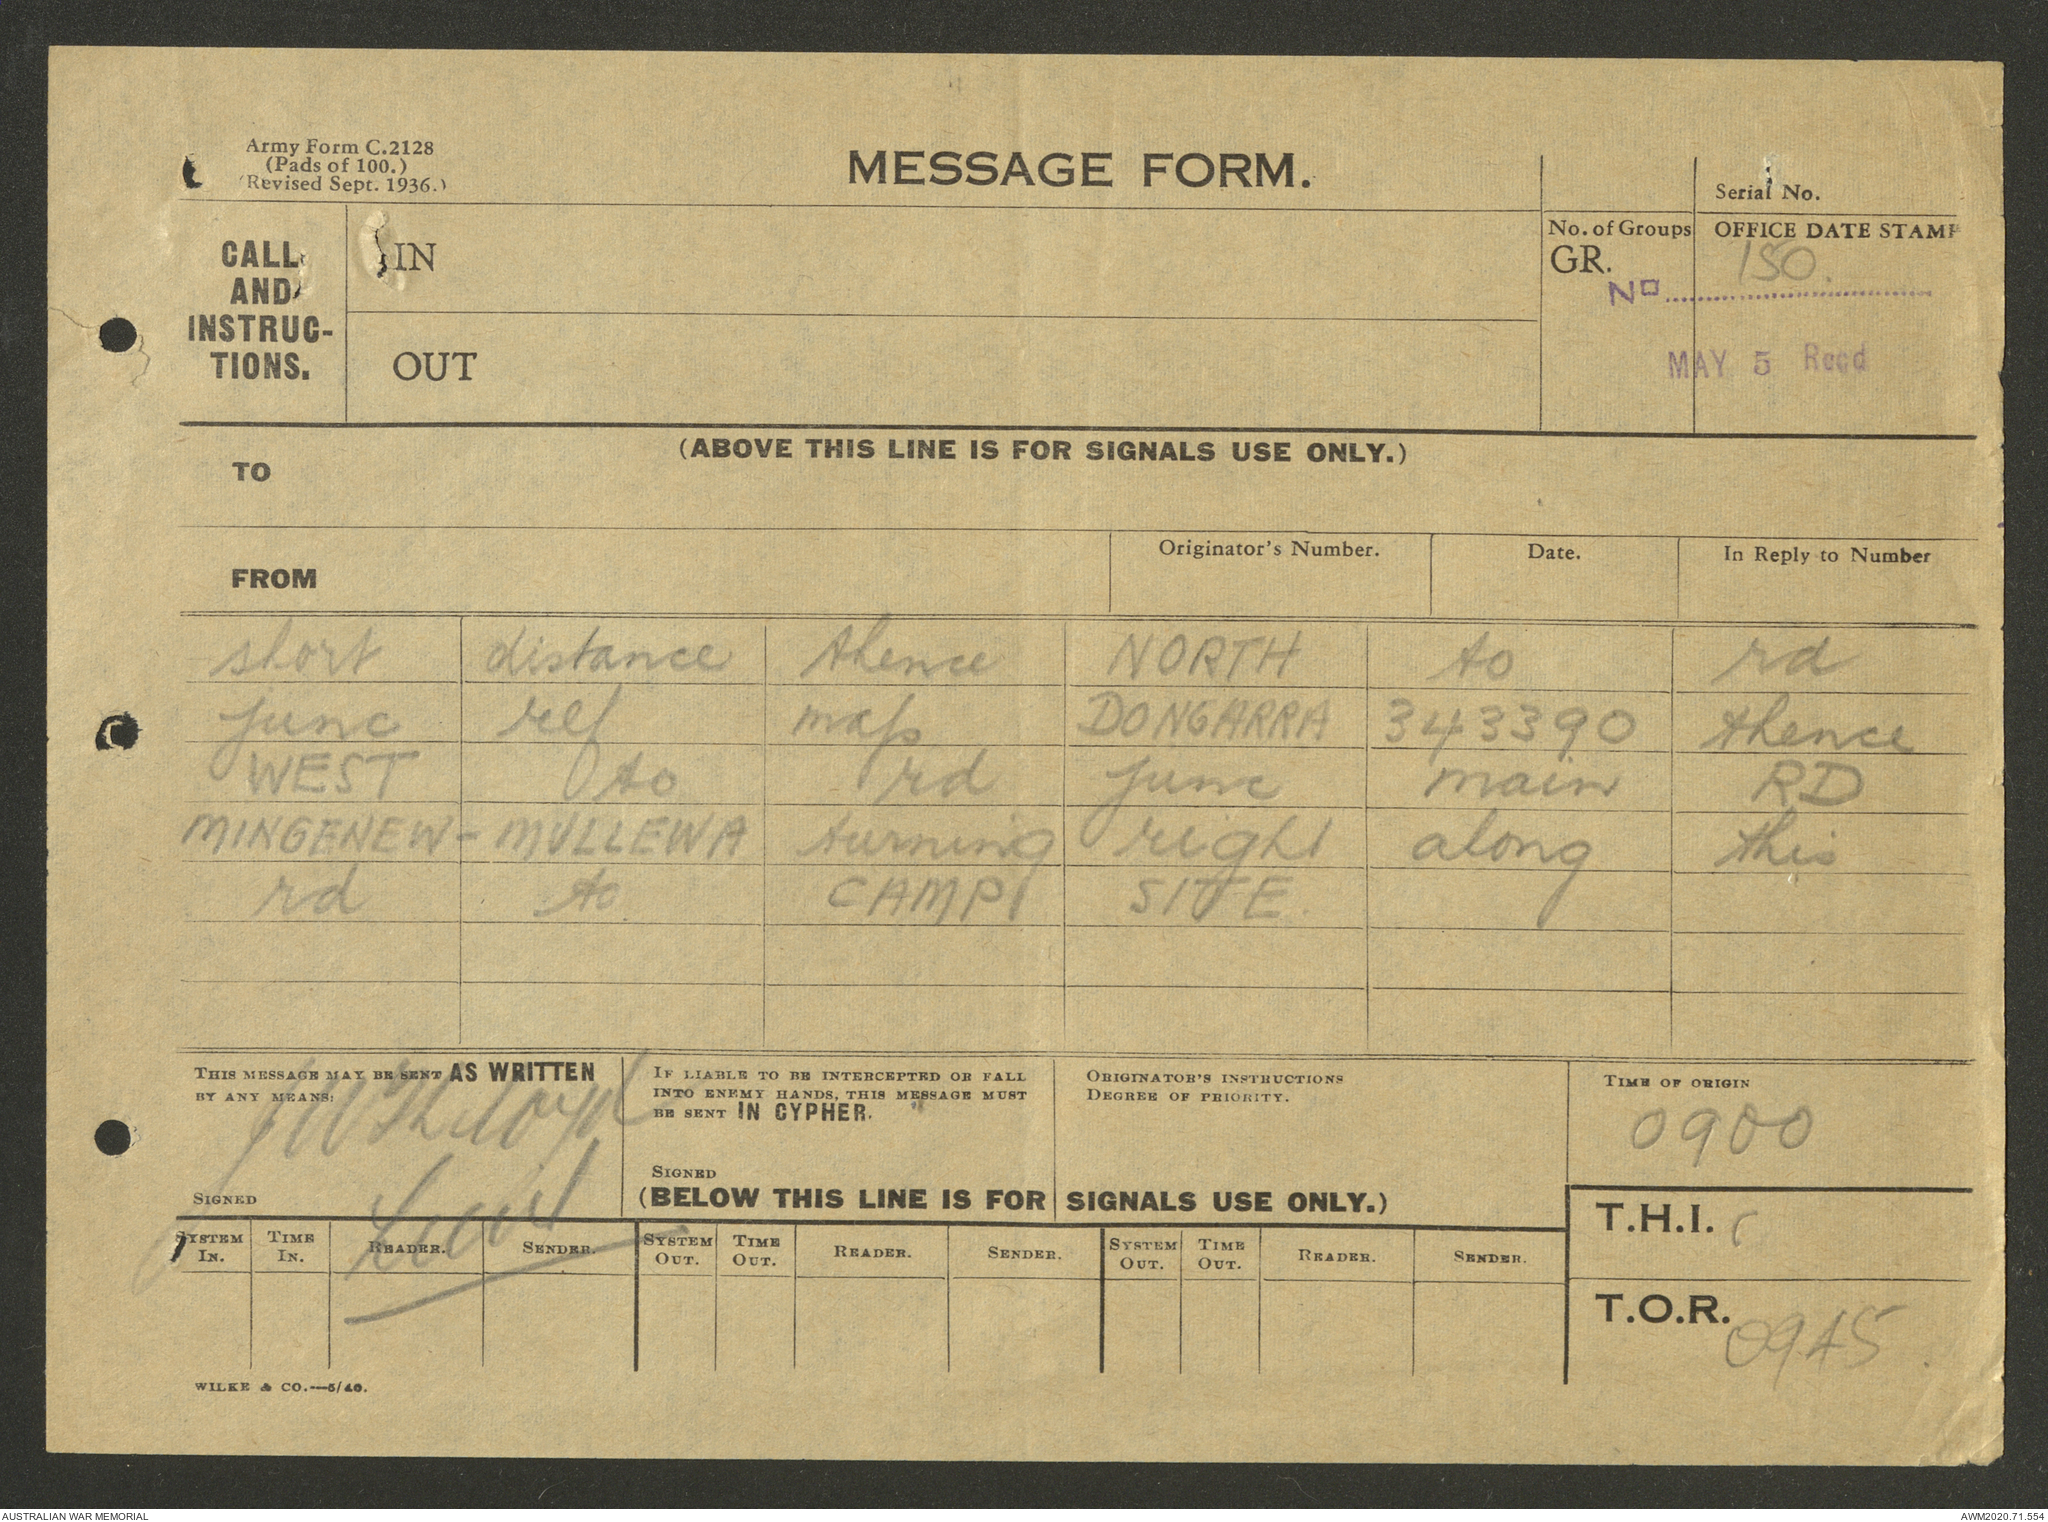 Army Form C.2128
(Pads of 100.)
(Revised Sept. 1936.)
MESSAGE FORM.
Serial No.
CALL
AND
INSTRUC-
TIONS.
IN
OUT
No. of Groups
GR.
OFFICE DATE STAMP
No 150.
MAY 5 Recd
(ABOVE THIS LINE IS FOR SIGNALS USE ONLY.)
TO
FROM
Originator's Number.
Date.
In Reply to Number
short distance thence NORTH to rd
junc ref map DONGARRA 343390 thence
WEST to rd junc main RD
MINGENEW - MULLEWA turning right along this
rd to CAMP SITE.
THIS MESSAGE MAY BE SENT AS WRITTEN
BY ANY MEANS:
SIGNED
Lieut
IF LIABLE TO BE INTERCEPTED OR FALL
INTO ENEMY HANDS, THIS MESSAGE MUST
BE SENT IN CYPHER.
SIGNED
ORIGINATOR'S INSTRUCTIONS
DEGREE OF PRIORITY.
TIME OF ORIGIN
0900
(BELOW THIS LINE IS FOR SIGNALS USE ONLY.)
T.H.I.
T.O.R. 0945
SYSTEM IN. TIME IN. READER. SENDER. SYSTEM OUT. TIME OUT. READER. SENDER. SYSTEM OUT. TIME OUT. READER. SENDER.
WILKE & CO.—5/40.
AUSTRALIAN WAR MEMORIAL
AWM2020.71.554